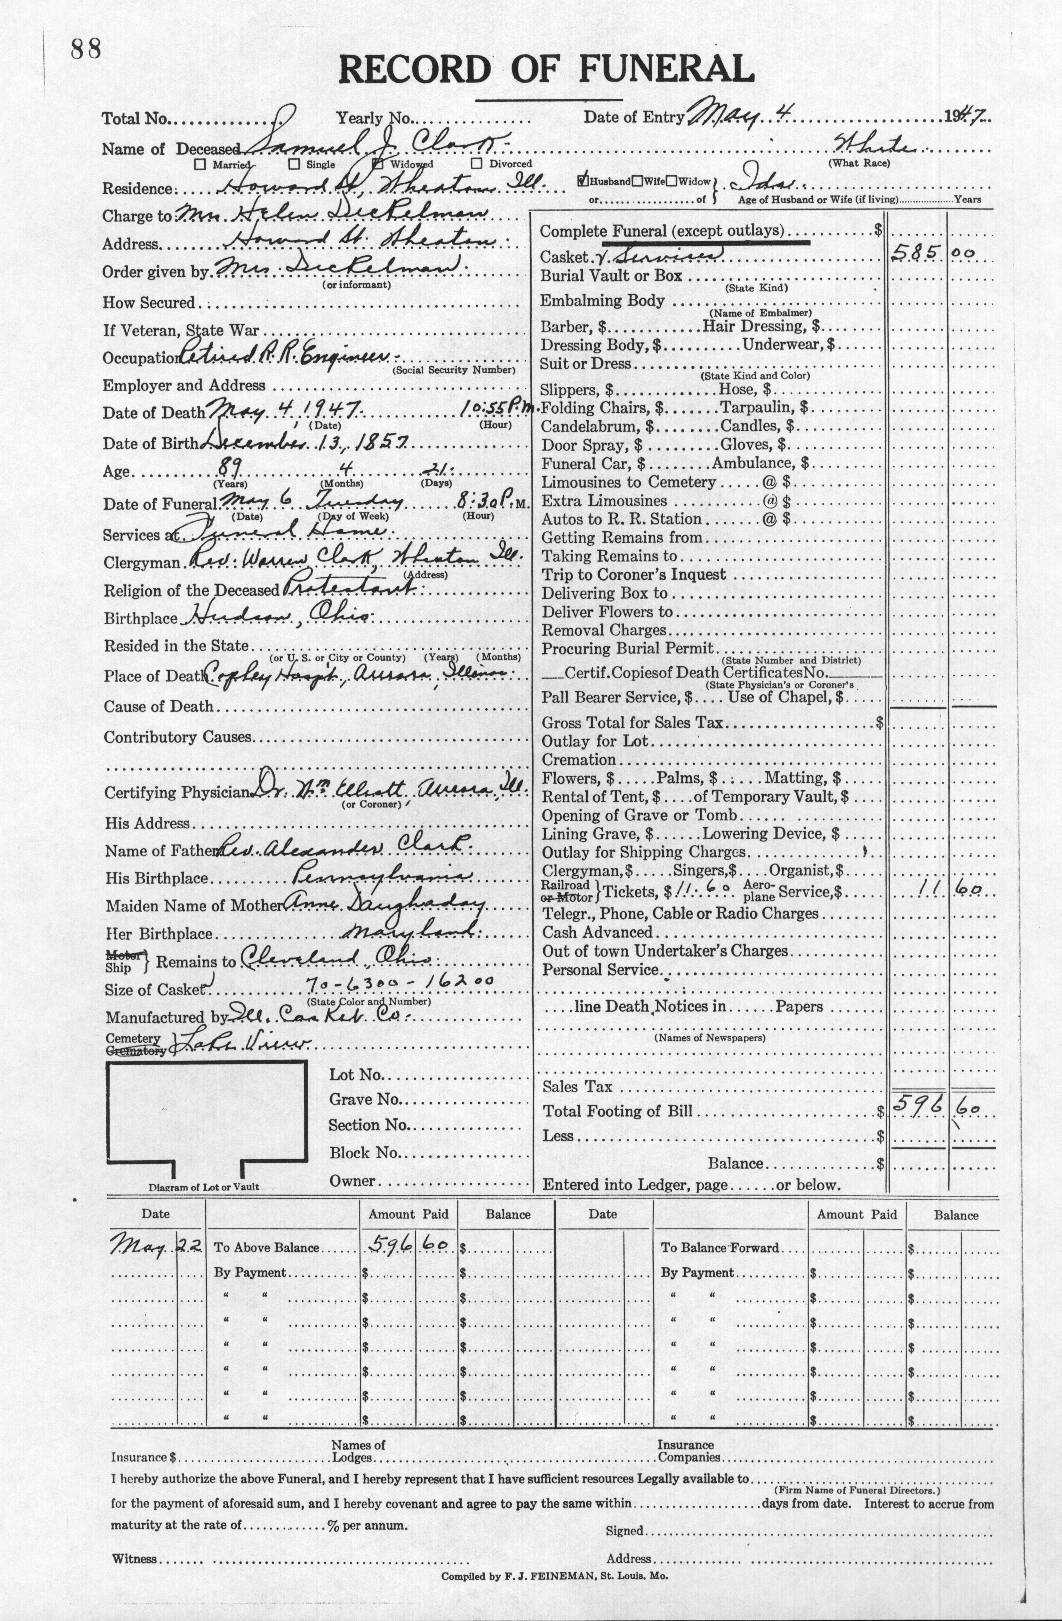 88
RECORD OF FUNERAL
Total No. Yearly No. Date of Entry May 4 1947
Name of Deceased Samuel J. Clark White
☐ Married ☐ Single ☑ Widowed ☐ Divorced (What Race)
Residence Howard St, Wheaton Ill. ☑Husband ☐Wife ☐Widow } Ida
or of } Age of Husband or Wife (if living) Years
Charge to Mrs Helen Dickelman
Address Howard St. Wheaton
Order given by Mrs. Dickelman
(or informant)
How Secured
If Veteran, State War
Occupation Retired R.R. Engineer
(Social Security Number)
Employer and Address
Date of Death May 4, 1947 10:55 P.M.
(Date) (Hour)
Date of Birth December 13, 1857
Age 89 4 21
(Years) (Months) (Days)
Date of Funeral May 6 Tuesday 8:30 P.M.
(Date) (Day of Week) (Hour)
Services at Funeral Home
Clergyman Rev. Warren Clark, Wheaton Ill.
(Address)
Religion of the Deceased Protestant
Birthplace Hudson, Ohio
Resided in the State
(or U. S. or City or County) (Years) (Months)
Place of Death Copley Hospt., Aurora, Illinois
Cause of Death
Contributory Causes
Certifying Physician Dr. Wm Elliott Aurora, Ill.
(or Coroner)
His Address
Name of Father Rev. Alexander Clark
His Birthplace Pennsylvania
Maiden Name of Mother Anne Daughaday
Her Birthplace Maryland
Motor
Ship } Remains to Cleveland, Ohio
Size of Casket 70-6300-16200
(State Color and Number)
Manufactured by Ill. Casket Co.
Cemetery
Crematory } Lake View
Lot No.
Grave No.
Section No.
Block No.
Owner
Diagram of Lot or Vault
Complete Funeral (except outlays) $
Casket & Services 585 00
Burial Vault or Box
(State Kind)
Embalming Body
(Name of Embalmer)
Barber, $ Hair Dressing, $
Dressing Body, $ Underwear, $
Suit or Dress
(State Kind and Color)
Slippers, $ Hose, $
Folding Chairs, $ Tarpaulin, $
Candelabrum, $ Candles, $
Door Spray, $ Gloves, $
Funeral Car, $ Ambulance, $
Limousines to Cemetery @ $
Extra Limousines @ $
Autos to R. R. Station @ $
Getting Remains from
Taking Remains to
Trip to Coroner's Inquest
Delivering Box to
Deliver Flowers to
Removal Charges
Procuring Burial Permit
(State Number and District)
Certif. Copies of Death Certificates No.
(State Physician's or Coroner's
Pall Bearer Service, $ Use of Chapel, $
Gross Total for Sales Tax $
Outlay for Lot
Cremation
Flowers, $ Palms, $ Matting, $
Rental of Tent, $ of Temporary Vault, $
Opening of Grave or Tomb
Lining Grave, $ Lowering Device, $
Outlay for Shipping Charges
Clergyman, $ Singers, $ Organist, $
Railroad
or Motor } Tickets, $ 11.60 Aero-plane Service, $ 11 60
Telegr., Phone, Cable or Radio Charges
Cash Advanced
Out of town Undertaker's Charges
Personal Service
line Death Notices in Papers
(Names of Newspapers)
Sales Tax
Total Footing of Bill $ 596 60
Less $
Balance $
Entered into Ledger, page or below.
Date Amount Paid Balance Date Amount Paid Balance
May 22 To Above Balance 596 60 $ To Balance Forward $
By Payment $ $ By Payment $ $
“ “ $ $ “ “ $ $
“ “ $ $ “ “ $ $
“ “ $ $ “ “ $ $
“ “ $ $ “ “ $ $
“ “ $ $ “ “ $ $
“ “ $ $ “ “ $ $
Insurance $ Names of Lodges Insurance Companies
I hereby authorize the above Funeral, and I hereby represent that I have sufficient resources Legally available to
(Firm Name of Funeral Directors.)
for the payment of aforesaid sum, and I hereby covenant and agree to pay the same within days from date. Interest to accrue from
maturity at the rate of % per annum.
Signed
Witness Address
Compiled by F. J. FEINEMAN, St. Louis, Mo.